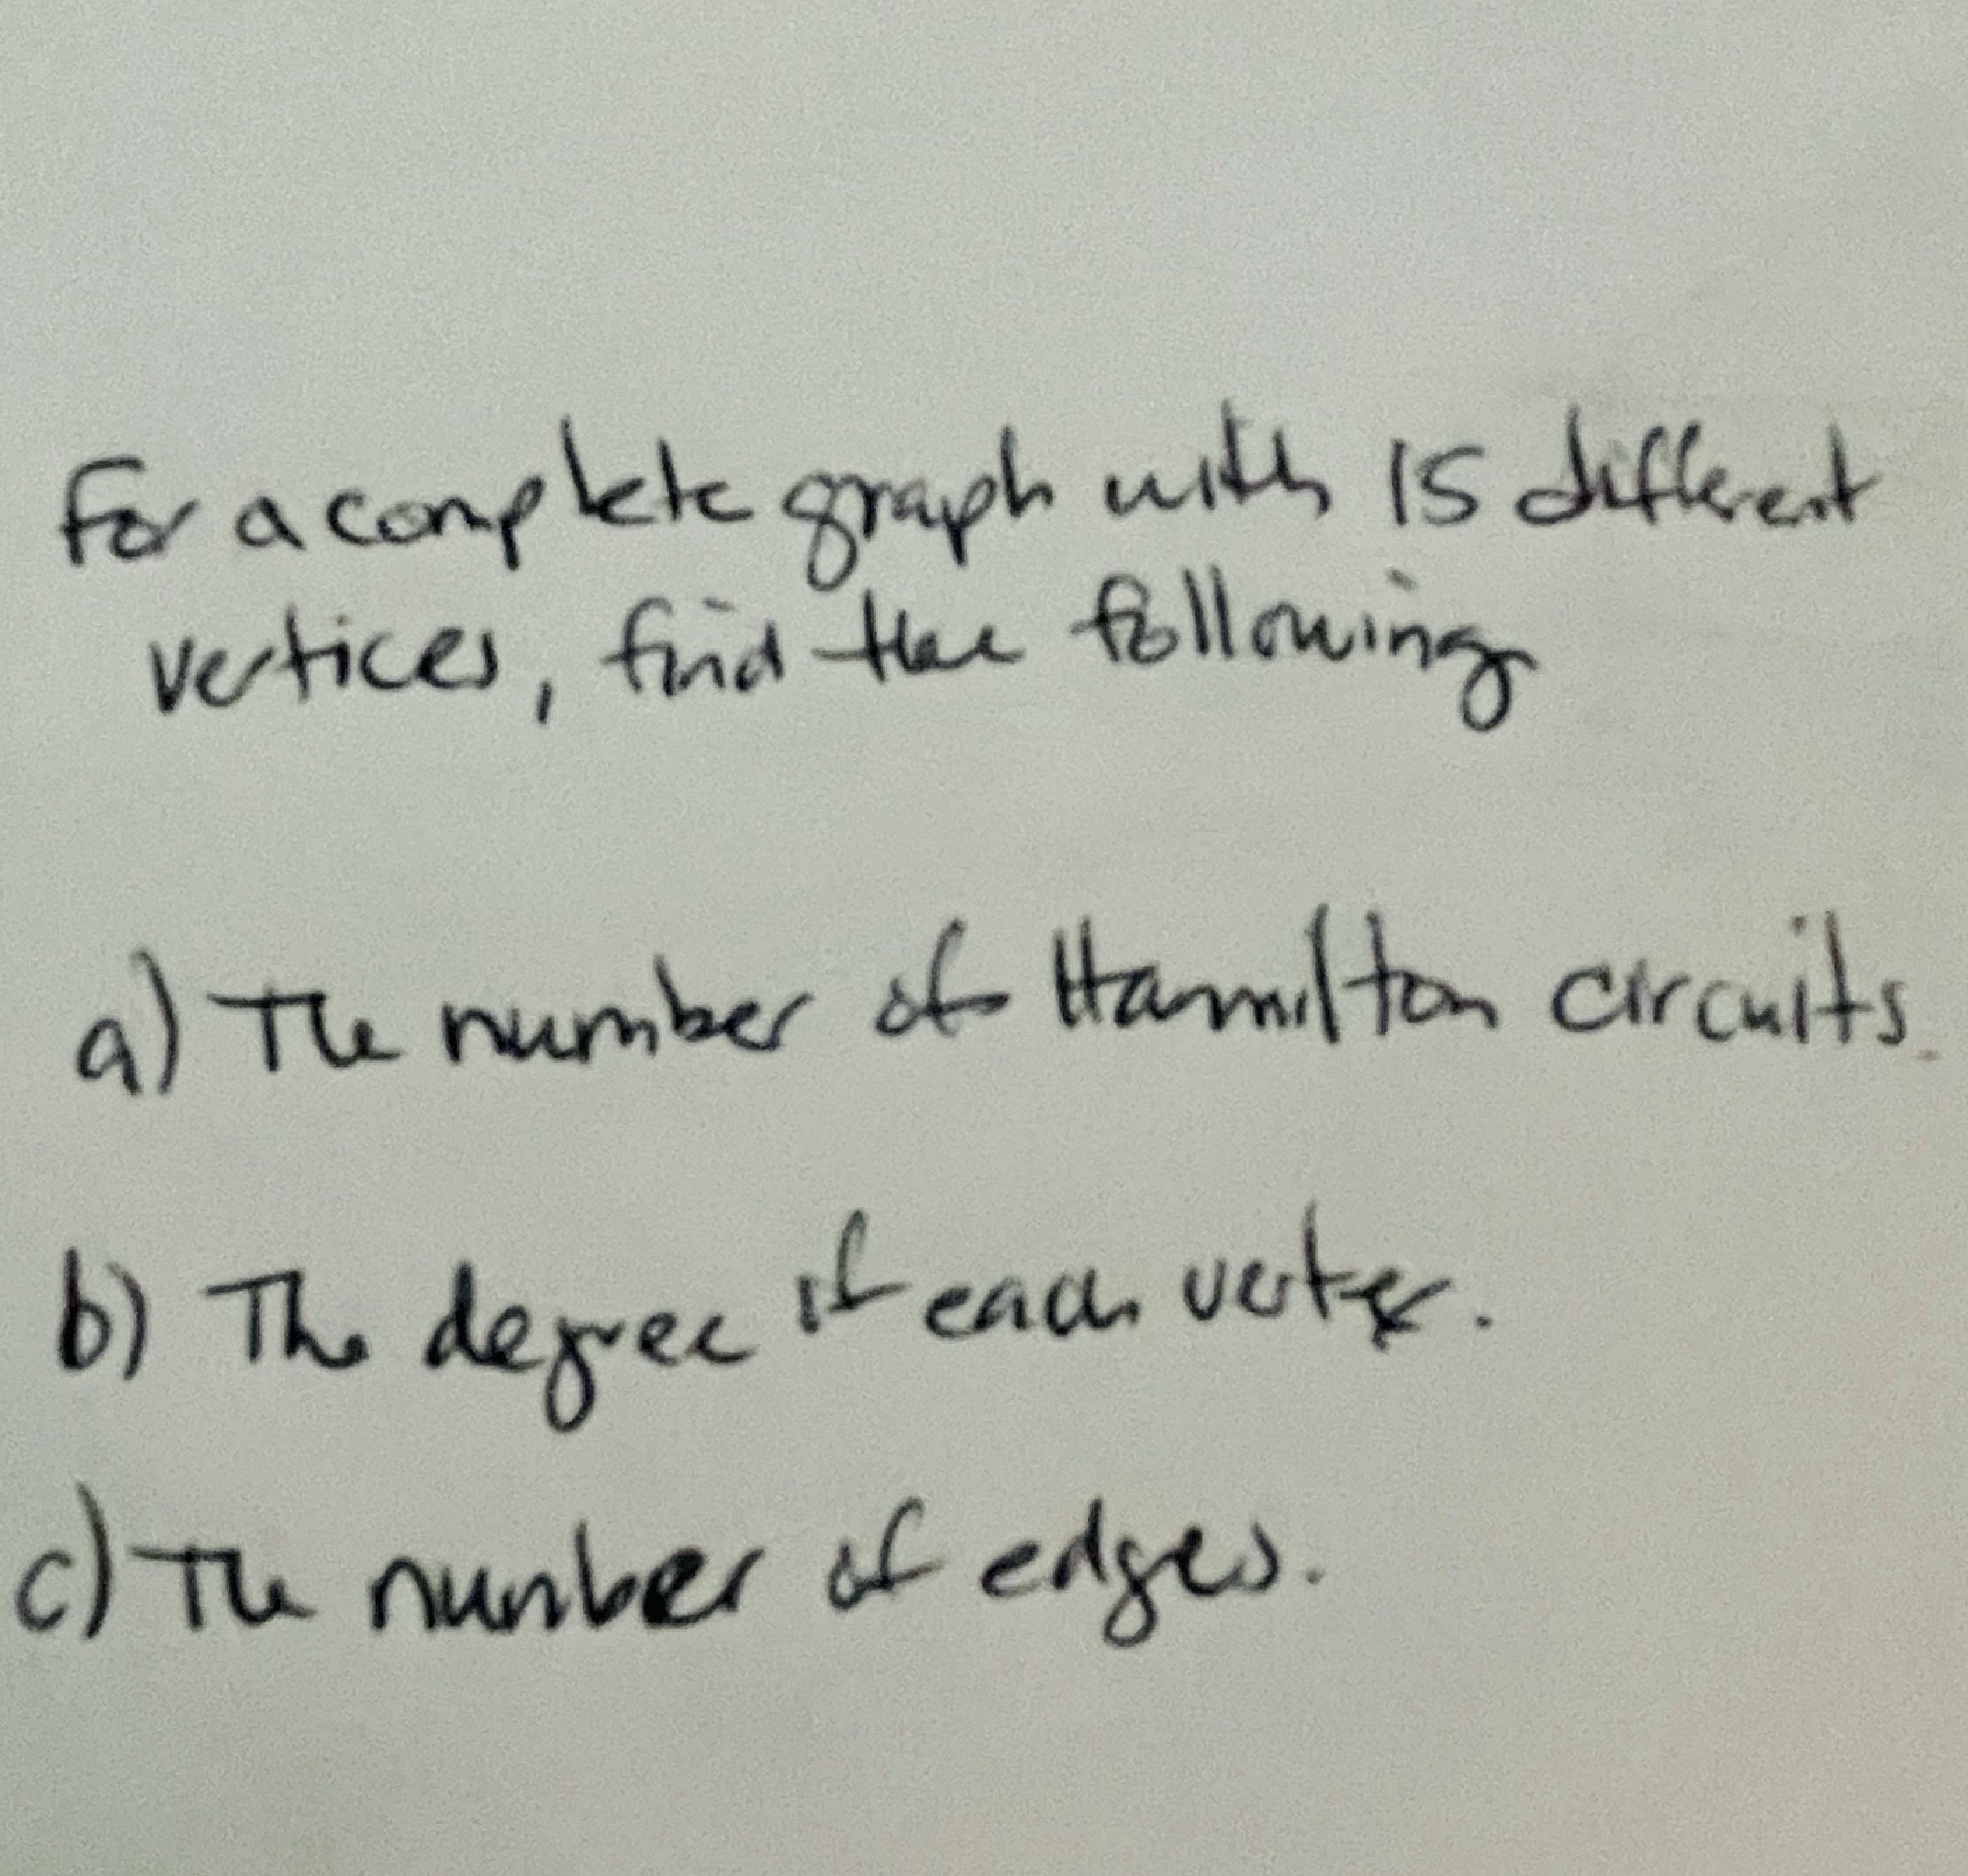 For a complete graph with 15 different
vertices, find the following
a) The number of Hamilton circuits.
b) The degree of each vertex.
c) The number of edges.